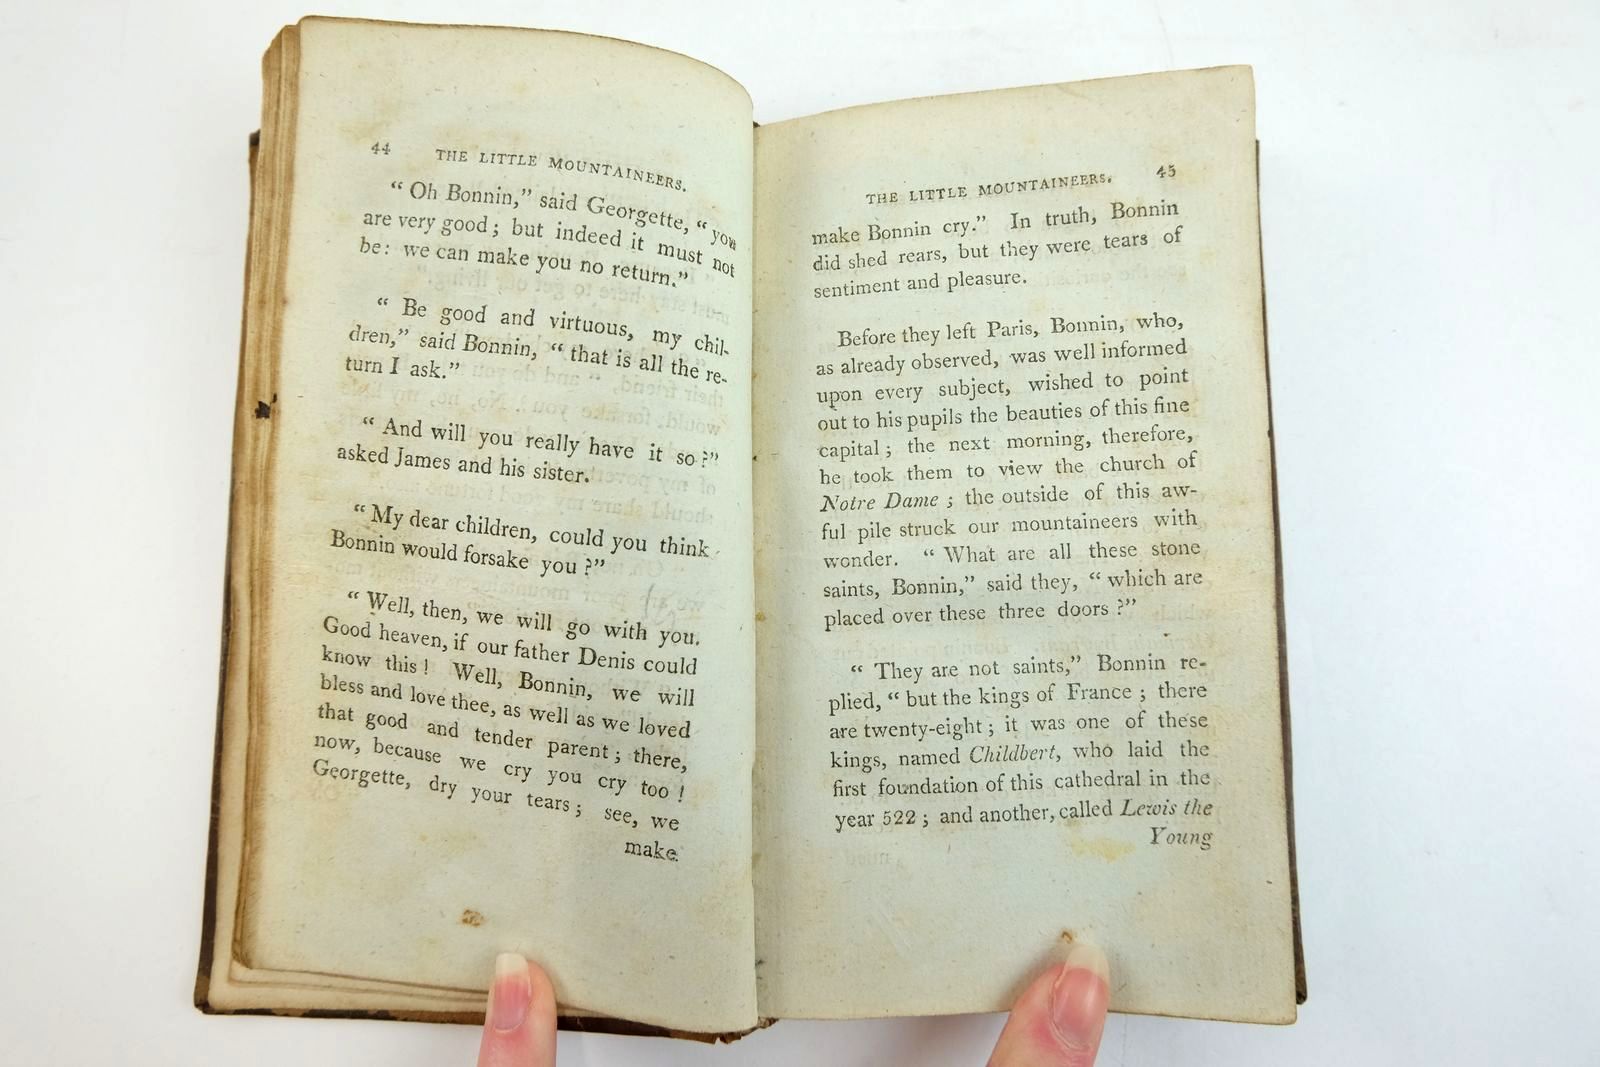 44 THE LITTLE MOUNTAINEERS.
“ Oh Bonnin,” said Georgette, “ you
are very good ; but indeed it must not
be : we can make you no return.”
“ Be good and virtuous, my chil-
dren,” said Bonnin, “ that is all the re-
turn I ask.”
“ And will you really have it so ?”
asked James and his sister.
“ My dear children, could you think
Bonnin would forsake you ?”
“ Well, then, we will go with you.
Good heaven, if our father Denis could
know this ! Well, Bonnin, we will
bless and love thee, as well as we loved
that good and tender parent ; there,
now, because we cry you cry too !
Georgette, dry your tears ; see, we
make
THE LITTLE MOUNTAINEERS. 45
make Bonnin cry.” In truth, Bonnin
did shed rears, but they were tears of
sentiment and pleasure.
Before they left Paris, Bonnin, who,
as already observed, was well informed
upon every subject, wished to point
out to his pupils the beauties of this fine
capital ; the next morning, therefore,
he took them to view the church of
Notre Dame ; the outside of this aw-
ful pile struck our mountaineers with
wonder. “ What are all these stone
saints, Bonnin,” said they, “ which are
placed over these three doors ?”
“ They are not saints,” Bonnin re-
plied, “ but the kings of France ; there
are twenty-eight ; it was one of these
kings, named Childbert, who laid the
first foundation of this cathedral in the
year 522 ; and another, called Lewis the
Young